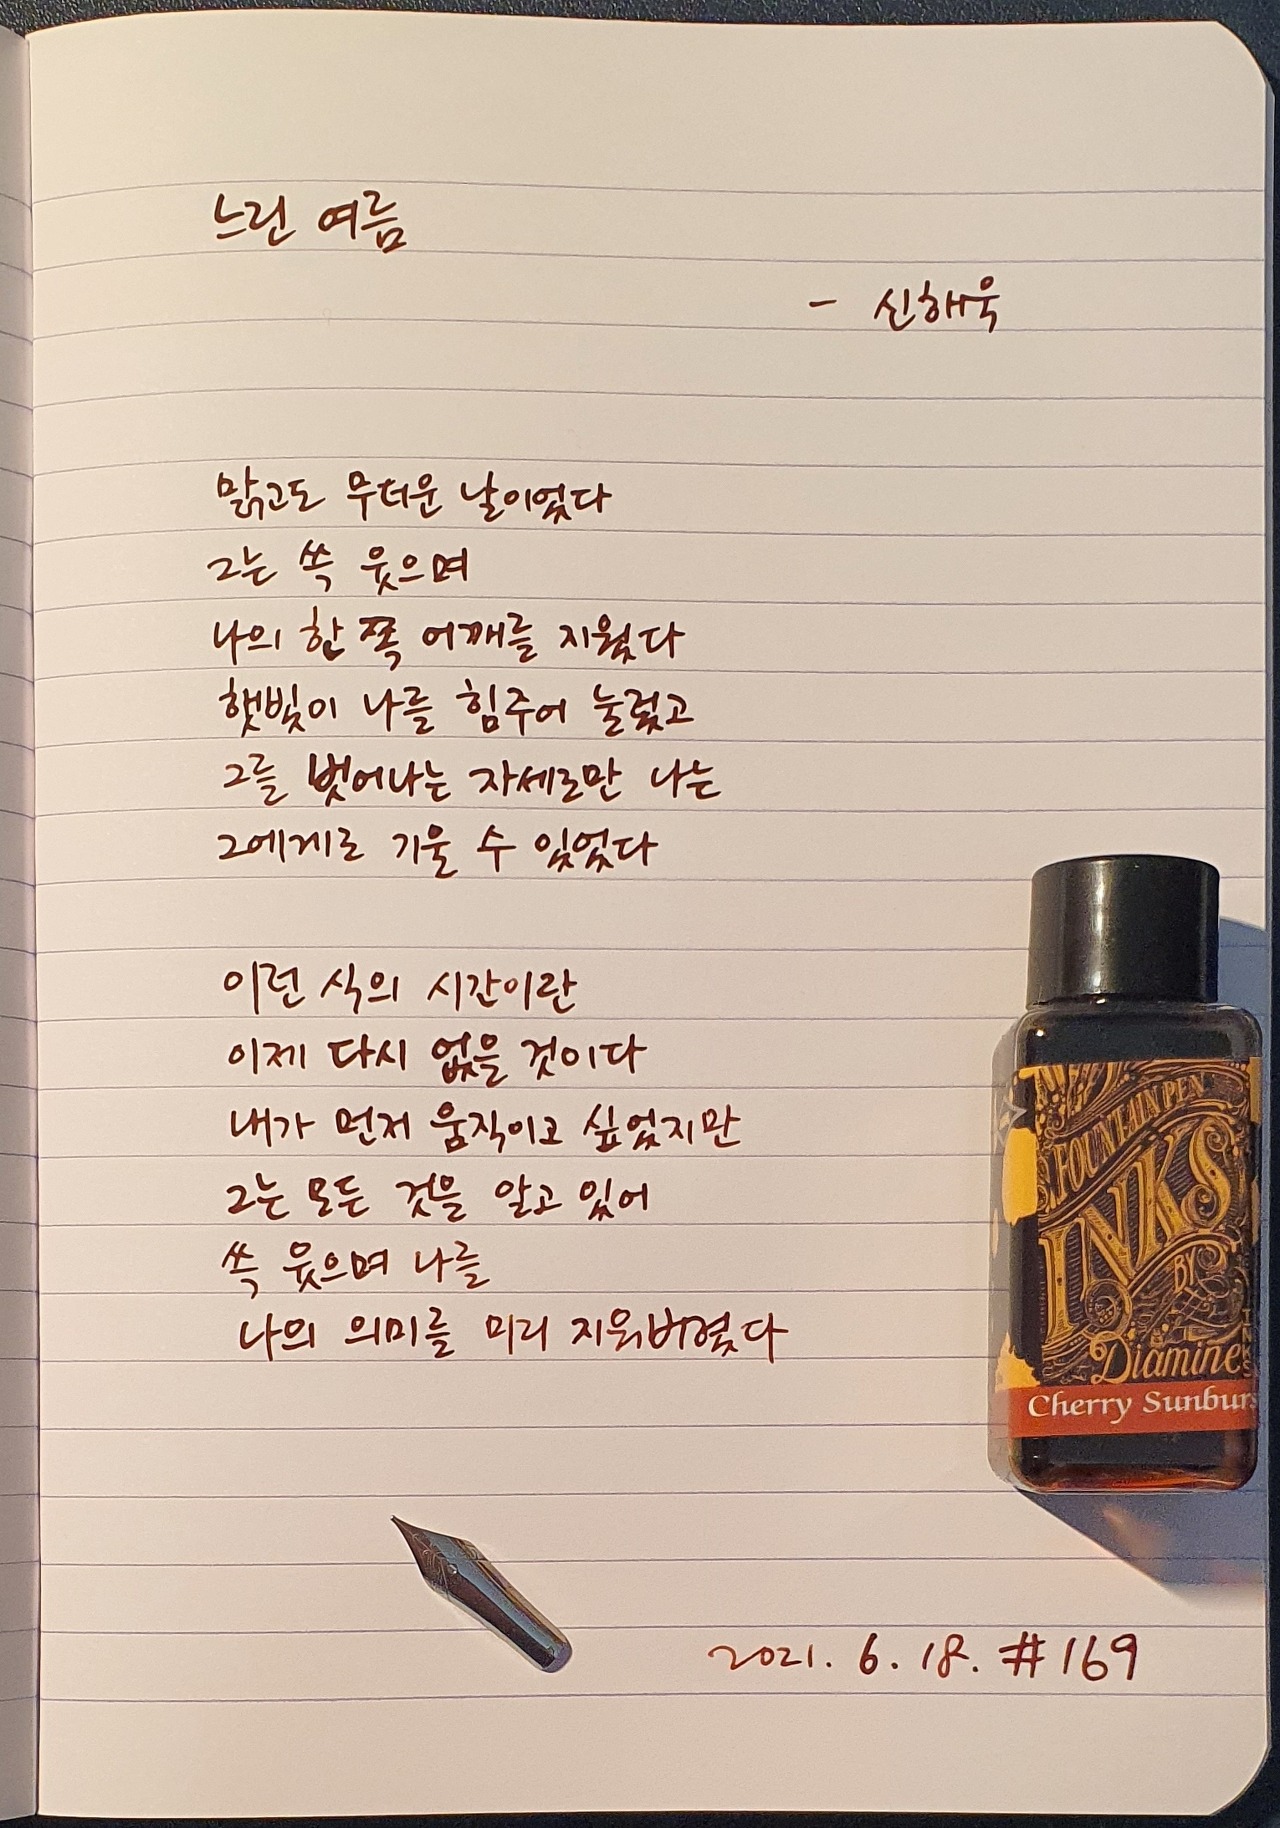 느린 여름
- 신해욱
맑고도 무더운 날이었다
그는 쏙 웃으며
나의 한 쪽 어깨를 지웠다
햇빛이 나를 힘주어 눌렀고
그를 벗어나는 자세로만 나는
그에게로 기울 수 있었다
이런 식의 시간이란
이제 다시 없을 것이다
내가 먼저 움직이고 싶었지만
그는 모든 것을 알고 있어
쏙 웃으며 나를
나의 의미를 미리 지워버렸다
FOUNTAIN PEN
INKS
BY
Diamine
Cherry Sunburs
2021. 6. 18. #169